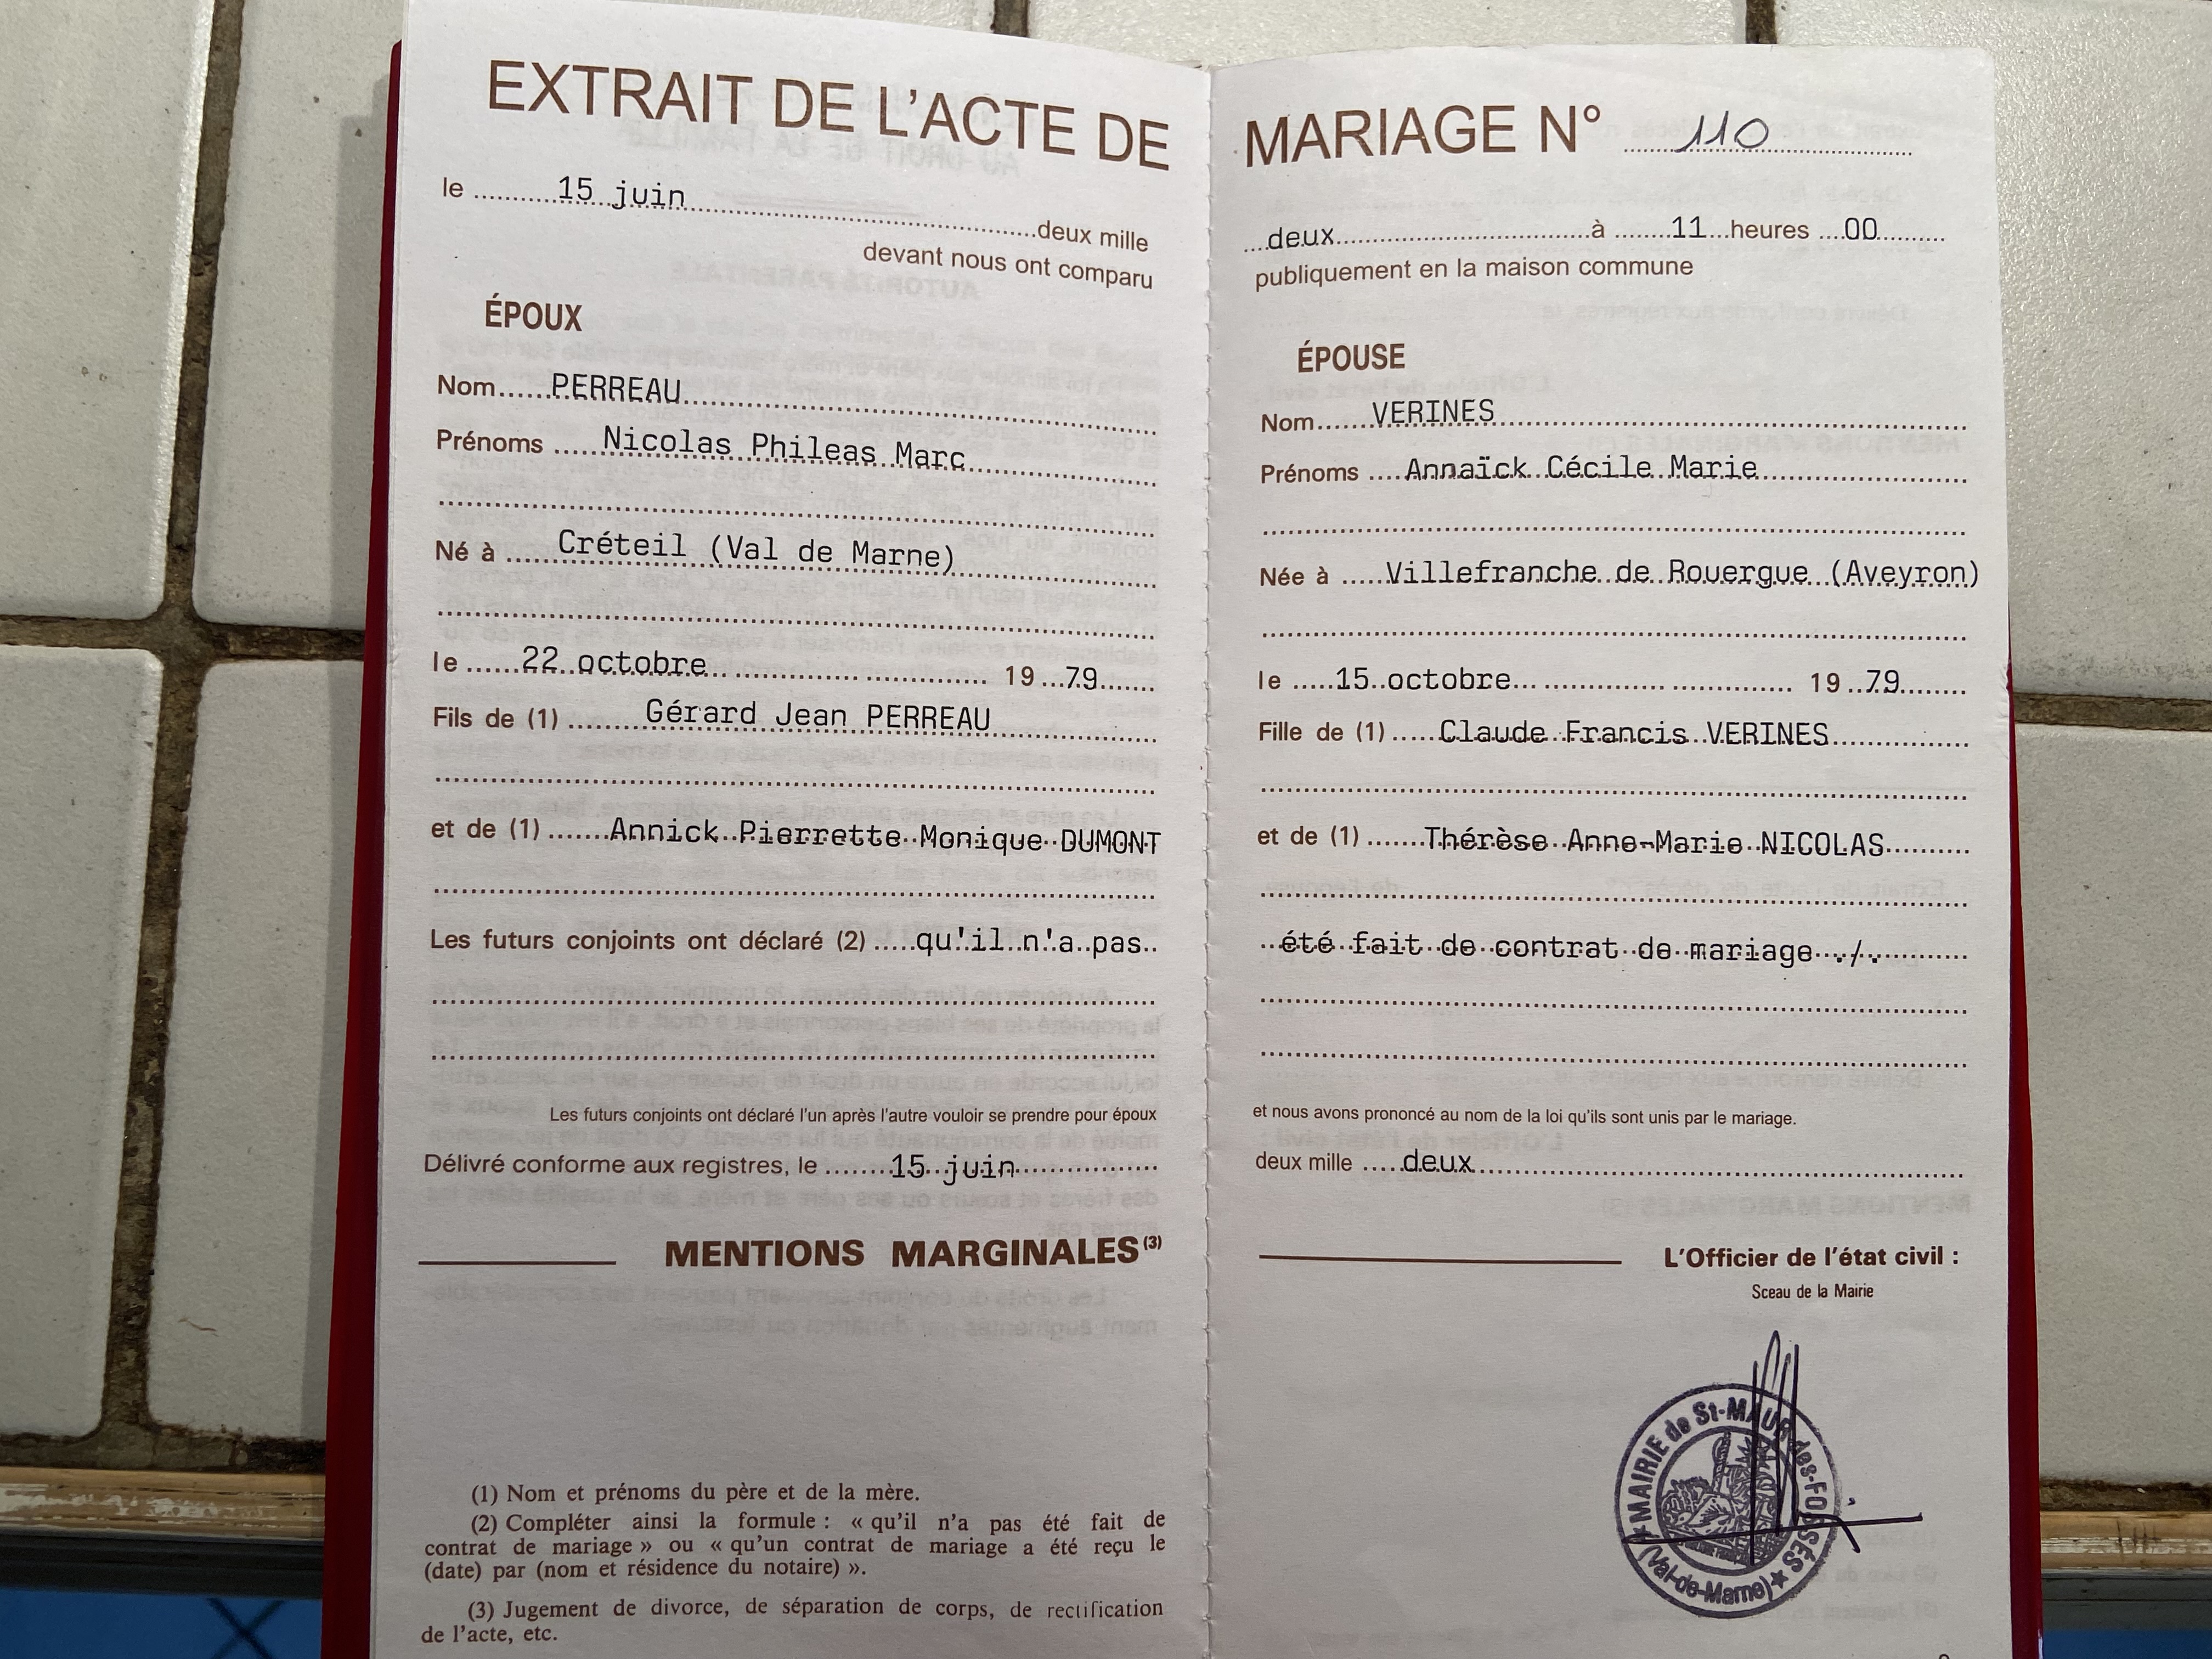 EXTRAIT DE L'ACTE DE
le 15 juin deux mille
devant nous ont comparu
ÉPOUX
Nom PERREAU
Prénoms Nicolas Phileas Marc
Né à Créteil (Val de Marne)
le 22 octobre 19 79
Fils de (1) Gérard Jean PERREAU
et de (1) Annick Pierrette Monique DUMONT
Les futurs conjoints ont déclaré (2) qu'il n'a pas
Les futurs conjoints ont déclaré l'un après l'autre vouloir se prendre pour époux
Délivré conforme aux registres, le 15 juin
MENTIONS MARGINALES (3)
(1) Nom et prénoms du père et de la mère.
(2) Compléter ainsi la formule : « qu'il n'a pas été fait de
contrat de mariage » ou « qu'un contrat de mariage a été reçu le
(date) par (nom et résidence du notaire) ».
(3) Jugement de divorce, de séparation de corps, de rectification
de l'acte, etc.
MARIAGE N° 110
deux à 11 heures 00
publiquement en la maison commune
ÉPOUSE
Nom VERINES
Prénoms Annaïck Cécile Marie
Née à Villefranche de Rouergue (Aveyron)
le 15 octobre 19 79
Fille de (1) Claude Francis VERINES
et de (1) Thérèse Anne-Marie NICOLAS
été fait de contrat de mariage ./.
et nous avons prononcé au nom de la loi qu'ils sont unis par le mariage.
deux mille deux
L'Officier de l'état civil :
Sceau de la Mairie
MAIRIE de St-MAUR des-FOSSÉS
(Val-de-Marne)